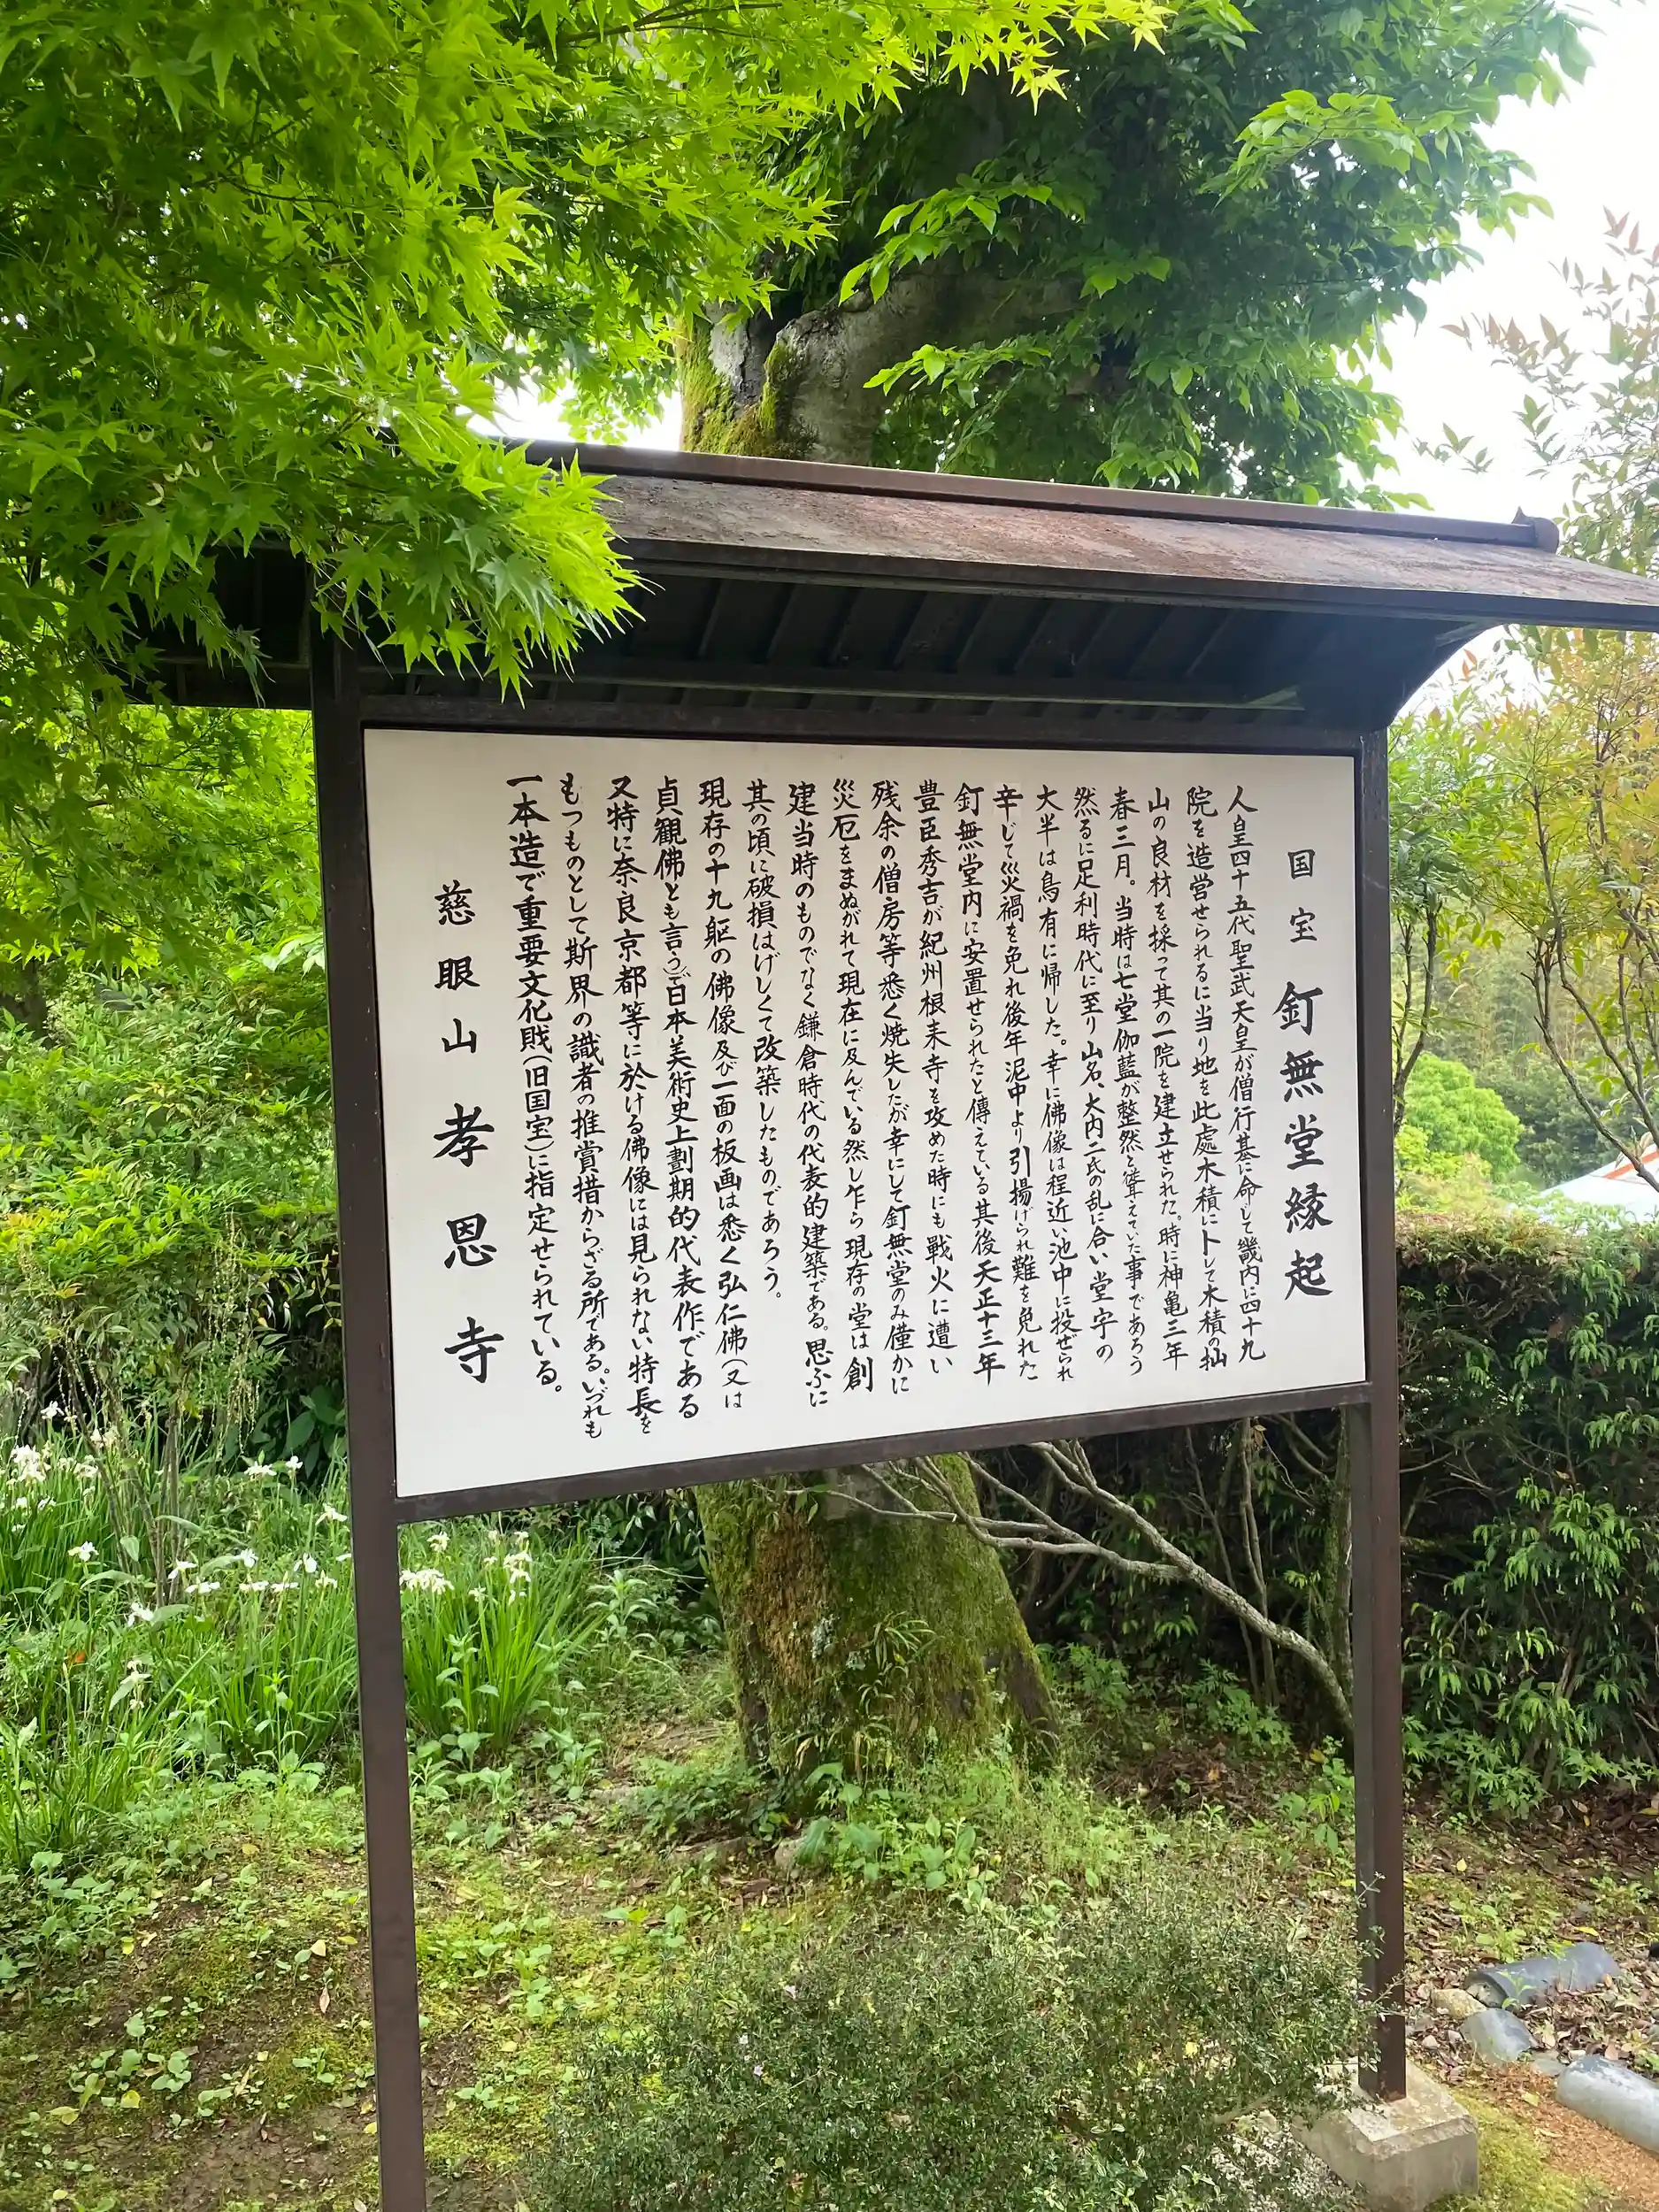 国宝 釘無堂縁起
人皇四十五代聖武天皇が僧行基に命して畿内に四十九
院を造営せられるに当り地を此處木積に卜して木積の拙
山の良材を採って其の一院を建立せられた。時に神亀三年
春三月。当時は七堂伽藍が整然と聳えていた事であろう
然るに足利時代に至り山名、大内二氏の乱に合い堂宇の
大半は烏有に帰した。幸に佛像は程近い池中に投ぜられ
辛じて災禍を免れ後年泥中より引揚げられ難を免れた
釘無堂内に安置せられたと傳えている其後天正十三年
豊臣秀吉が紀州根来寺を攻めた時にも戦火に遭い
残余の僧房等悉く焼失したが幸にして釘無堂のみ僅かに
災厄をまぬがれて現在に及んでいる然し乍ら現存の堂は創
建当時のものでなく鎌倉時代の代表的建築である。思ふに
其の頃に破損はげしくて改築したものであろう。
現存の十九躯の佛像及び一面の板画は悉く弘仁佛(又は
貞観佛とも言う)で日本美術史上劃期的代表作である
又特に奈良京都等に於ける佛像には見られない特長を
もつものとして斯界の識者の推賞措からざる所である。いづれも
一本造で重要文化財(旧国宝)に指定せられている。
慈眼山孝恩寺